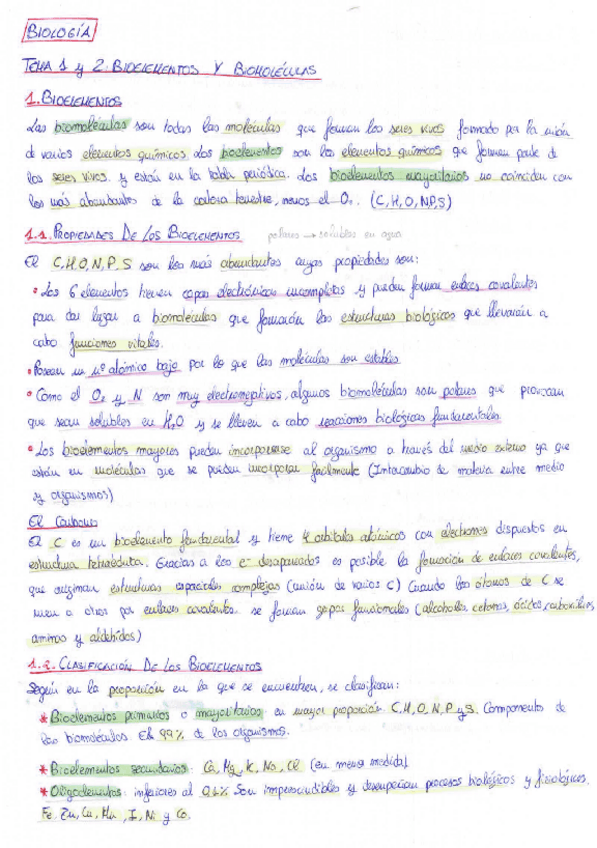 BIOLOGÍA
TEMA 1 y 2: BIOELEMENTOS Y BIOMOLÉCULAS
1. BIOELEMENTOS
Las biomoléculas son todas las moléculas que forman los seres vivos formado por la unión
de varios elementos químicos. Los bioelementos son los elementos químicos que forman parte de
los seres vivos y están en la tabla periódica. Los bioelementos mayoritarios no coinciden con
los más abundantes de la corteza terrestre, menos el O₂. (C,H,O,N,P,S)
1.1. PROPIEDADES DE LOS BIOELEMENTOS polares → solubles en agua
El C,H,O,N,P,S son los más abundantes cuyas propiedades son:
• Los 6 elementos tienen capas electrónicas incompletas y pueden formar enlaces covalentes
para dar lugar a biomoléculas que formarán las estructuras biológicas que llevarán a
cabo funciones vitales.
• Poseen un nº atómico bajo por lo que las moléculas son estables
• Como el O₂ y N son muy electronegativos, algunas biomoléculas son polares que provocan
que sean solubles en H₂O y se lleven a cabo reacciones biológicas fundamentales
• Los bioelementos mayores pueden incorporarse al organismo a través del medio externo ya que
están en moléculas que se pueden incorporar fácilmente (Intercambio de materia entre medio
y organismos)
El Carbono
El C es un bioelemento fundamental y tiene 4 orbitales atómicos con electrones dispuestos en
estructura tetraédrica. Gracias a los e⁻ desapareados es posible la formación de enlaces covalentes,
que originan estructuras espaciales complejas (unión de varios C) Cuando los átomos de C se
unen a otros por enlaces covalentes se forman grupos funcionales (alcoholes, cetonas, ácidos carboxílicos,
aminas y aldehídos)
1.2. CLASIFICACIÓN DE LOS BIOELEMENTOS
Según en la proporción en la que se encuentren, se clasifican:
* Bioelementos primarios o mayoritarios: en mayor proporción C,H,O,N,P y S. Componente de
las biomoléculas El 99% de los organismos.
* Bioelementos secundarios: Ca, Mg, K, Na, Cl (en menor medida)
* Oligoelementos: inferiores al 0,1% Son imprescindibles y desempeñan procesos biológicos y fisiológicos.
Fe, Zn, Cu, Mn, I, Ni y Co.